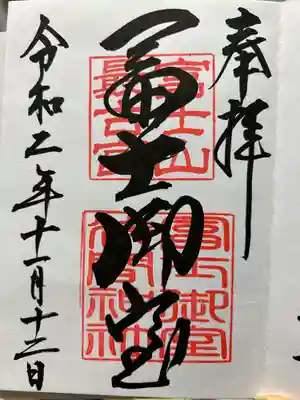 奉拝
冨士御室
富士山
最古宮
冨士御室
浅間神社
令和二年十一月十三日